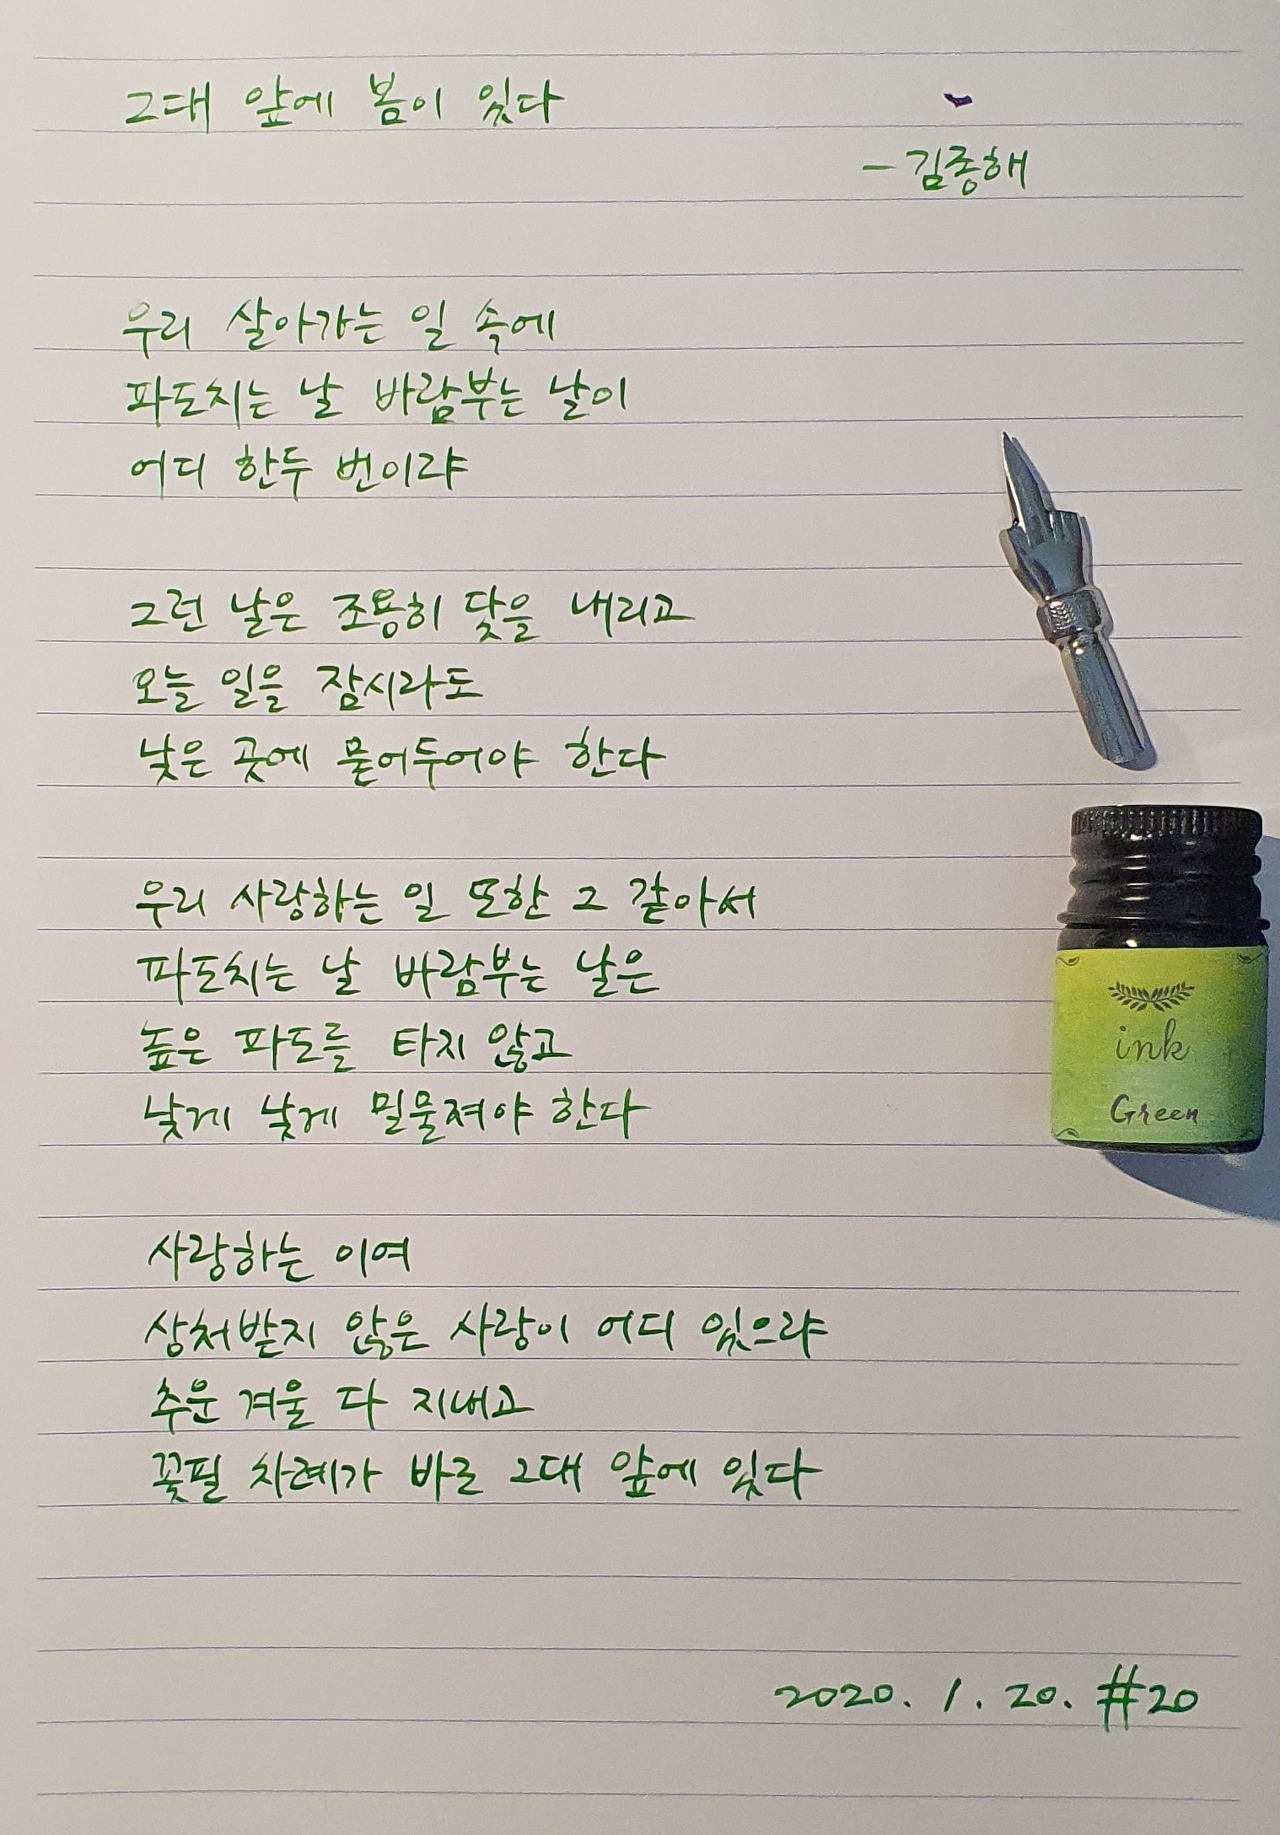 그대 앞에 봄이 있다
- 김종해
우리 살아가는 일 속에
파도치는 날 바람부는 날이
어디 한두 번이랴
그런 날은 조용히 닻을 내리고
오늘 일을 잠시라도
낮은 곳에 묻어두어야 한다
우리 사랑하는 일 또한 그 같아서
파도치는 날 바람부는 날은
높은 파도를 타지 않고
낮게 낮게 밀물져야 한다
사랑하는 이여
상처받지 않은 사랑이 어디 있으랴
추운 겨울 다 지내고
꽃필 차례가 바로 그대 앞에 있다
2020. 1. 20. #20
ink
Green